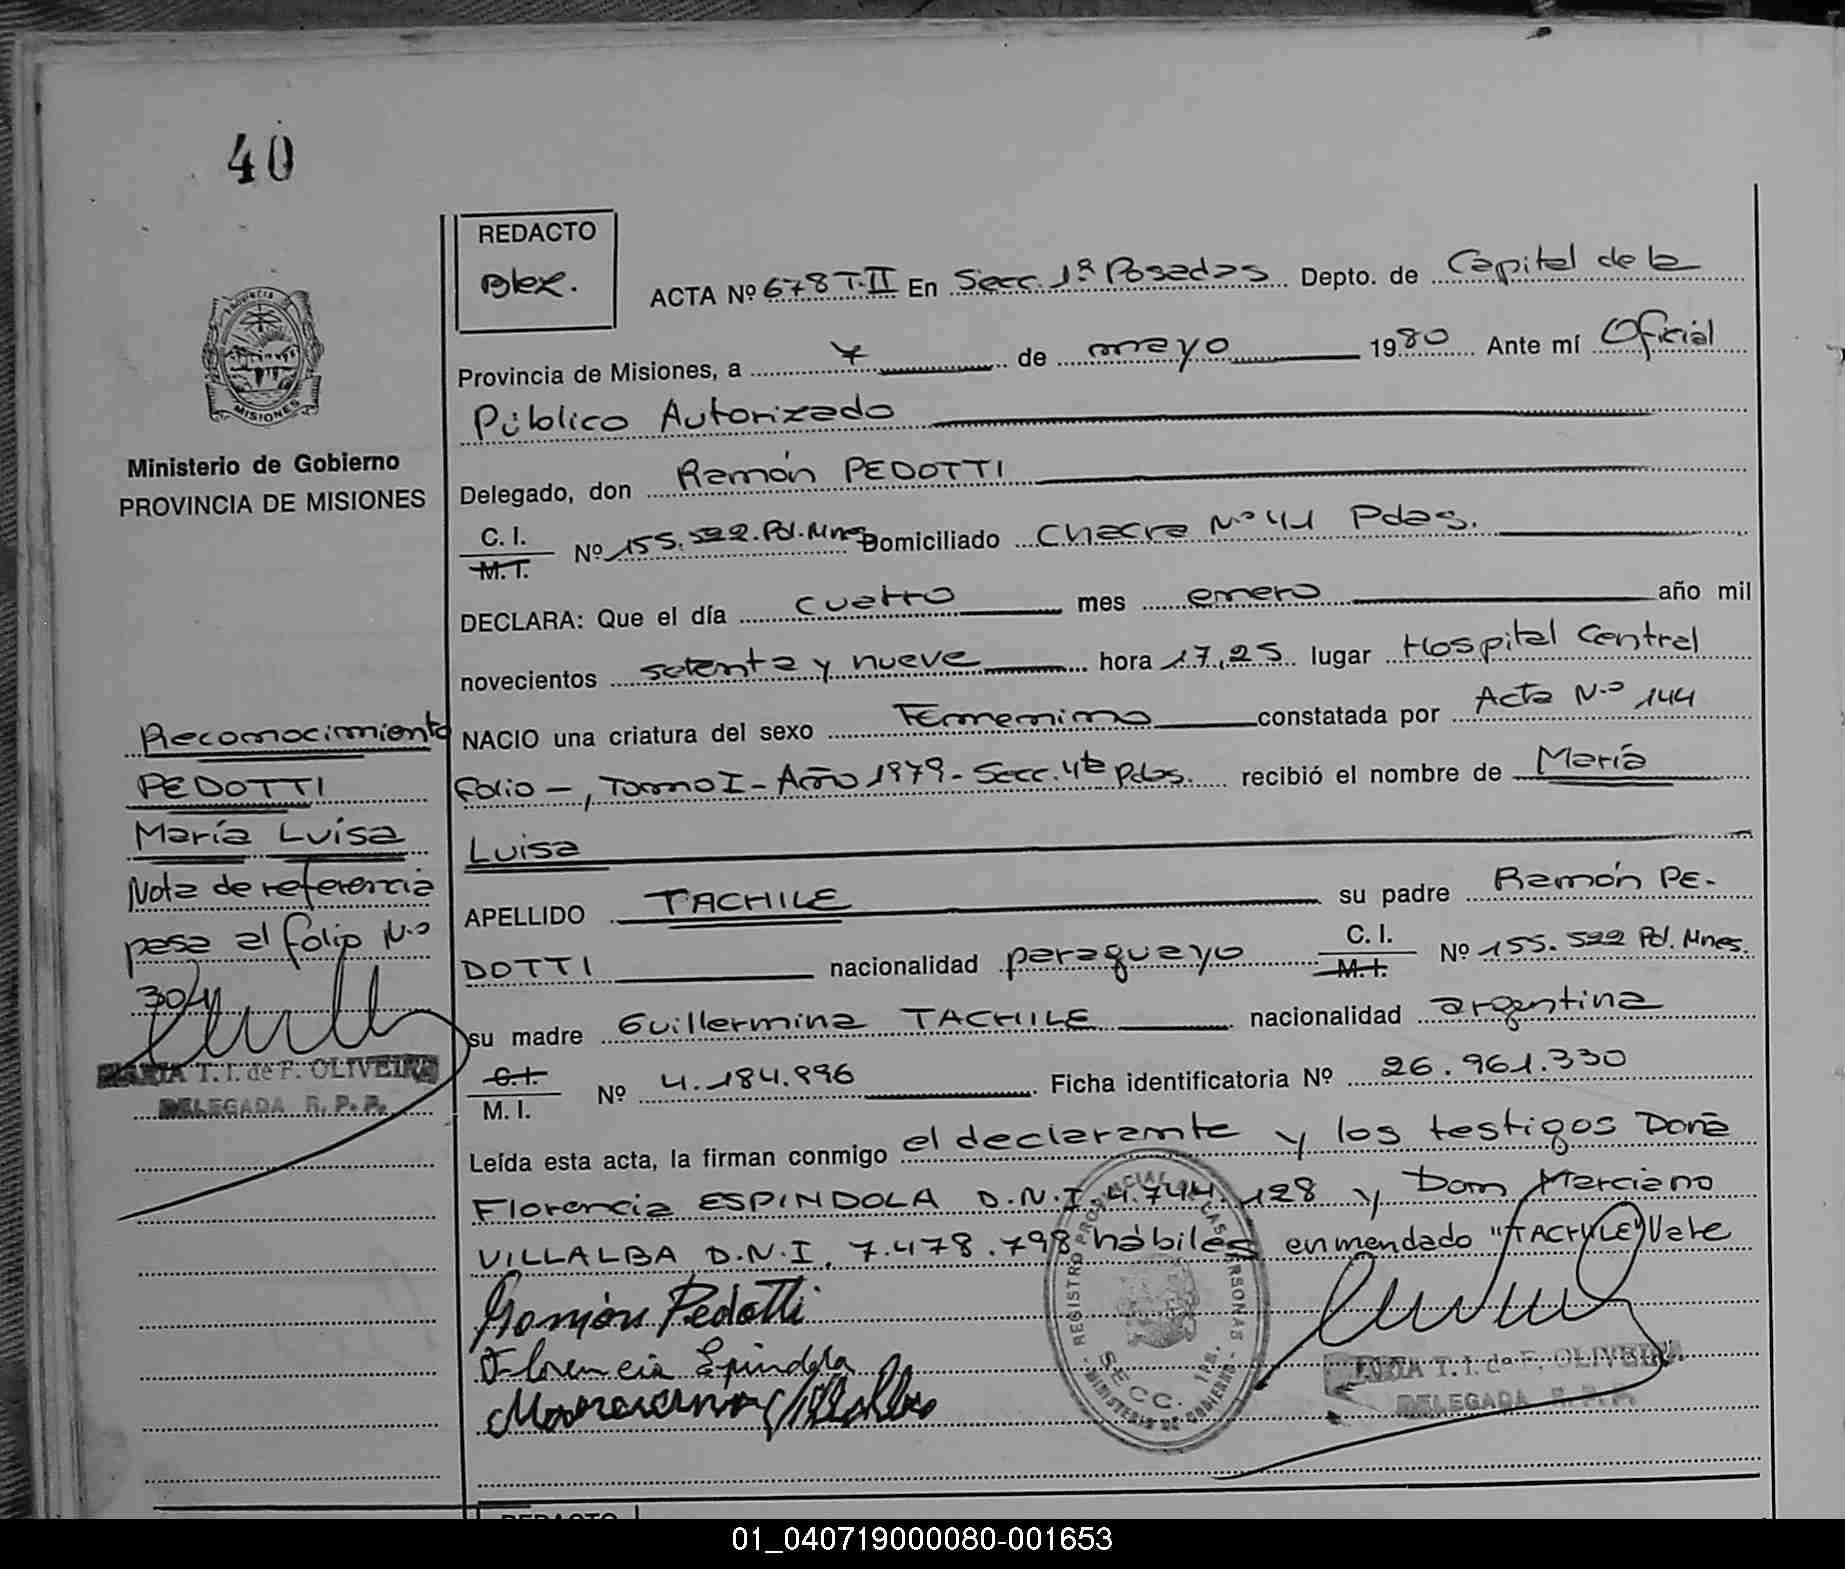 40
REDACTO
Blex.
ACTA Nº 678 T.II En Secc. 1ª Posadas Depto. de Capital de la
Provincia de Misiones, a 7 de mayo 1980 Ante mí Oficial
Público Autorizado
Delegado, don Ramón PEDOTTI
C. I.
M. I. Nº 155.522. Pol. Mnes Domiciliado Chacra Nº 41 Pdas.
DECLARA: Que el día cuatro mes enero año mil
novecientos setenta y nueve hora 17,25 lugar Hospital Central
NACIO una criatura del sexo Femenino constatada por Acta Nº 144
folio -, Tomo I - Año 1979 - Secc. 4ta Pdas. recibió el nombre de María
Luisa
APELLIDO TACHILE su padre Ramón PE-
DOTTI nacionalidad paraguayo C. I.
M. I. Nº 155.522 Pol. Mnes.
su madre Guillermina TACHILE nacionalidad argentina
C. I.
M. I. Nº 4.184.996 Ficha identificatoria Nº 26.961.330
Leída esta acta, la firman conmigo el declarante y los testigos Doña
Florencia ESPINDOLA D.N.I 4.744.128 y Don Marciano
VILLALBA D.N.I. 7.478.798 hábiles enmendado "TACHILE" Vale
Ramón Pedotti
Florencia Espindola
Villalba
REGISTRO PROVINCIAL DE LAS PERSONAS
SECC. 1RA.
MINISTERIO DE GOBIERNO
MARIA T. I. de F. OLIVEIRA
DELEGADA R. P. P.
PROVINCIA
MISIONES
Ministerio de Gobierno
PROVINCIA DE MISIONES
Reconocimiento
PEDOTTI
María Luisa
Nota de referencia
pasa al folio Nº
304
MARIA T. I. de F. OLIVEIRA
DELEGADA R. P. P.
REDACTO
01_040719000080-001653